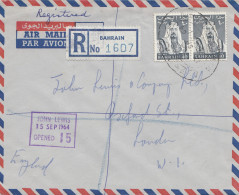 Registered
بالبريد الجوي
AIR MAIL
PAR AVION
R
BAHRAIN
No 1607
BAHRAIN
BAHRAIN
John Lewis & Company Ltd.,
Oxford St.,
London
W. 1.
England
JOHN LEWIS
15 SEP 1964
OPENED 15